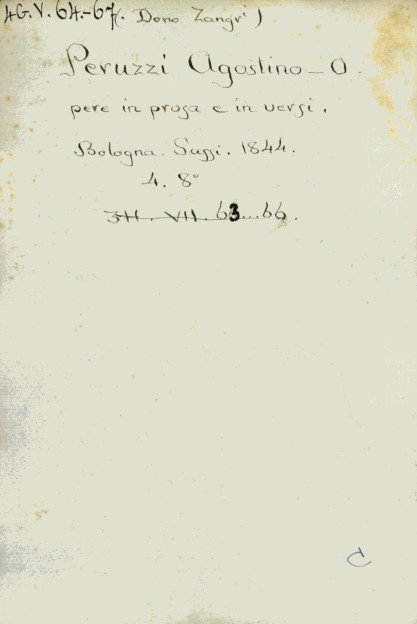 4G.V.64.-67(. Dono Zangri)
Peruzzi Agostino - O
pere in prosa e in versi.
Bologna. Sassi. 1844.
4. 8°
3H. VII. 63...66.
C